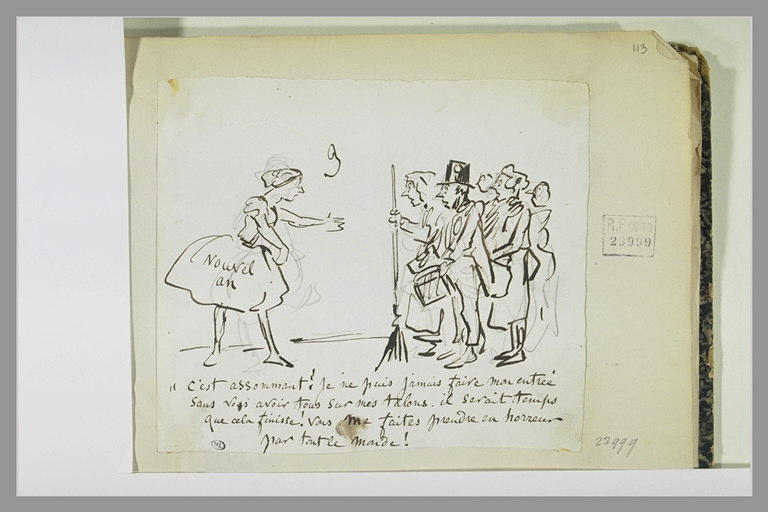 113
9
Nouvel
an
R.F. 1870
23999
" C'est assommant! je ne puis jamais faire mon entrée
Sans vous avoir tous sur mes talons. il serait temps
que cela finisse! vous me faites prendre en horreur
par tout le monde!
23999